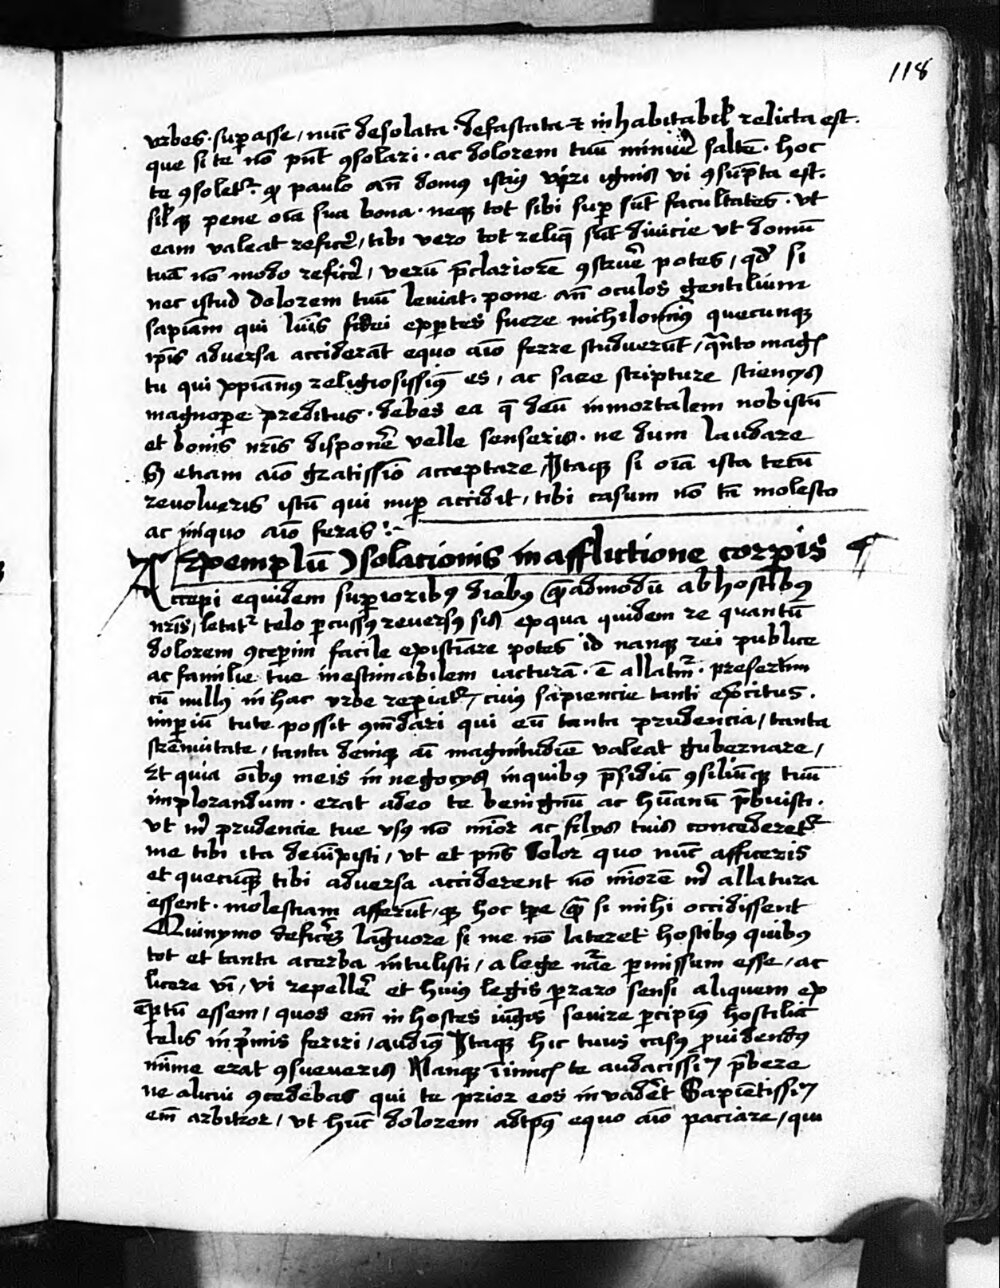 118
vrbes. sup̄asse / nūc desolata. defastata et inhabitabil̄ relicta est.
que si te nō pn̄t ꝯsolari. ac dolorem tuū minuē saltē. hoc
te ꝯsoletr. qꝫ paulo an̄ domꝯ istiꝯ viri ignis vi ꝯsūpta est.
silqꝫ pene oīa sua bona. neqꝫ tot sibi sup̄ sūt facultates. vt
eam valeat reficē / tibi vero tot reliq̄ sūt diuicie vt domū
tuā nō modo reficē / verū p̄clariorē ꝯstruē potes / qd si
nec istud dolorem tuū leuiat. pone an̄ oculos gentilium
sapiam qui luīs fidei expertes fuere nichilominꝯ quecunqꝫ
ip̄is aduersa acciderāt equo aīo ferre studuerūt / q̄nto magꝭ
tu qui xp̄ianꝯ religiosissimꝯ es / ac sacre scripture sciencijs
magnop̄e preditus. debes ea q̄ deū inmortalem nobiscū
et bonis nr̄is disponē velle senseris. ne dum laudare
sꝫ etiam aīo gratissīo acceptare / Itaqꝫ si oīa ista tecū
reuolueris istū qui nup̄ accidit / tibi casum nō tā molesto
ac iniquo aīo feras
Exemplū ꝯsolacionis in afflictione corp̄is
Accepi equidem sup̄ioribꝯ diebꝯ q̄admodū ab hostibꝯ
nr̄is / letatr telo p̄cussꝯ reuersꝯ sis ex qua quidem re quantū
dolorem ꝯcep̄im facile existīare potes id nanqꝫ rei publice
ac familie tue inestimabilem iacturā. ē allatur. presertim
cū nullꝯ in hac vrbe rep̄iatr / cuiꝯ sapiencie tanti exercitus.
imp̄iū tute possit ꝯmēdari qui eū tanta prudencia / tanta
strēnuitate / tanta deniqꝫ aī magnitudīe valeat gubernare /
Et quia oībꝯ meis in negocijs in quibꝯ p̄sidiū ꝯsiliūqꝫ tuū
implorandum. erat adeo te benignū ac hūanū p̄buisti.
vt m̄ prudencie tue vsꝯ nō mīor ac filijs tuis concederetr
me tibi ita deuīxisti / vt et pn̄s dolor quo nūc afficeris
et quecūqꝫ tibi aduersa acciderent nō mīorē m̄ allatura
essent. molestiam afferūt / qꝫ hoc tp̄e q̄ si mihi occidissent
Quinymo deficēs langwore si me nō lateret hostibꝯ quibꝯ
tot et tanta acerba intulisti / a lege nāe p̄missum esse / ac
licere vī / vi repellē et huiꝯ legis p̄raro sensi aliquem ex
ēptū essem / quos em̄ in hostes iūgis seuire p̄cipimꝯ hostilibꝯ
telis in p̄mis feriri / audimꝯ Itaqꝫ hic tuus casꝯ p̄uidendꝯ
mīme erat ꝯsueueris Nanqꝫ īimicꝭ te audacissīꝫ p̄bere
ne alicui ꝯcedebas qui te prior eos inuadēt Sapiētissīꝫ
em̄ arbitror / vt hūc dolorem adtp̄ꝯ equo aīo paciare / qui